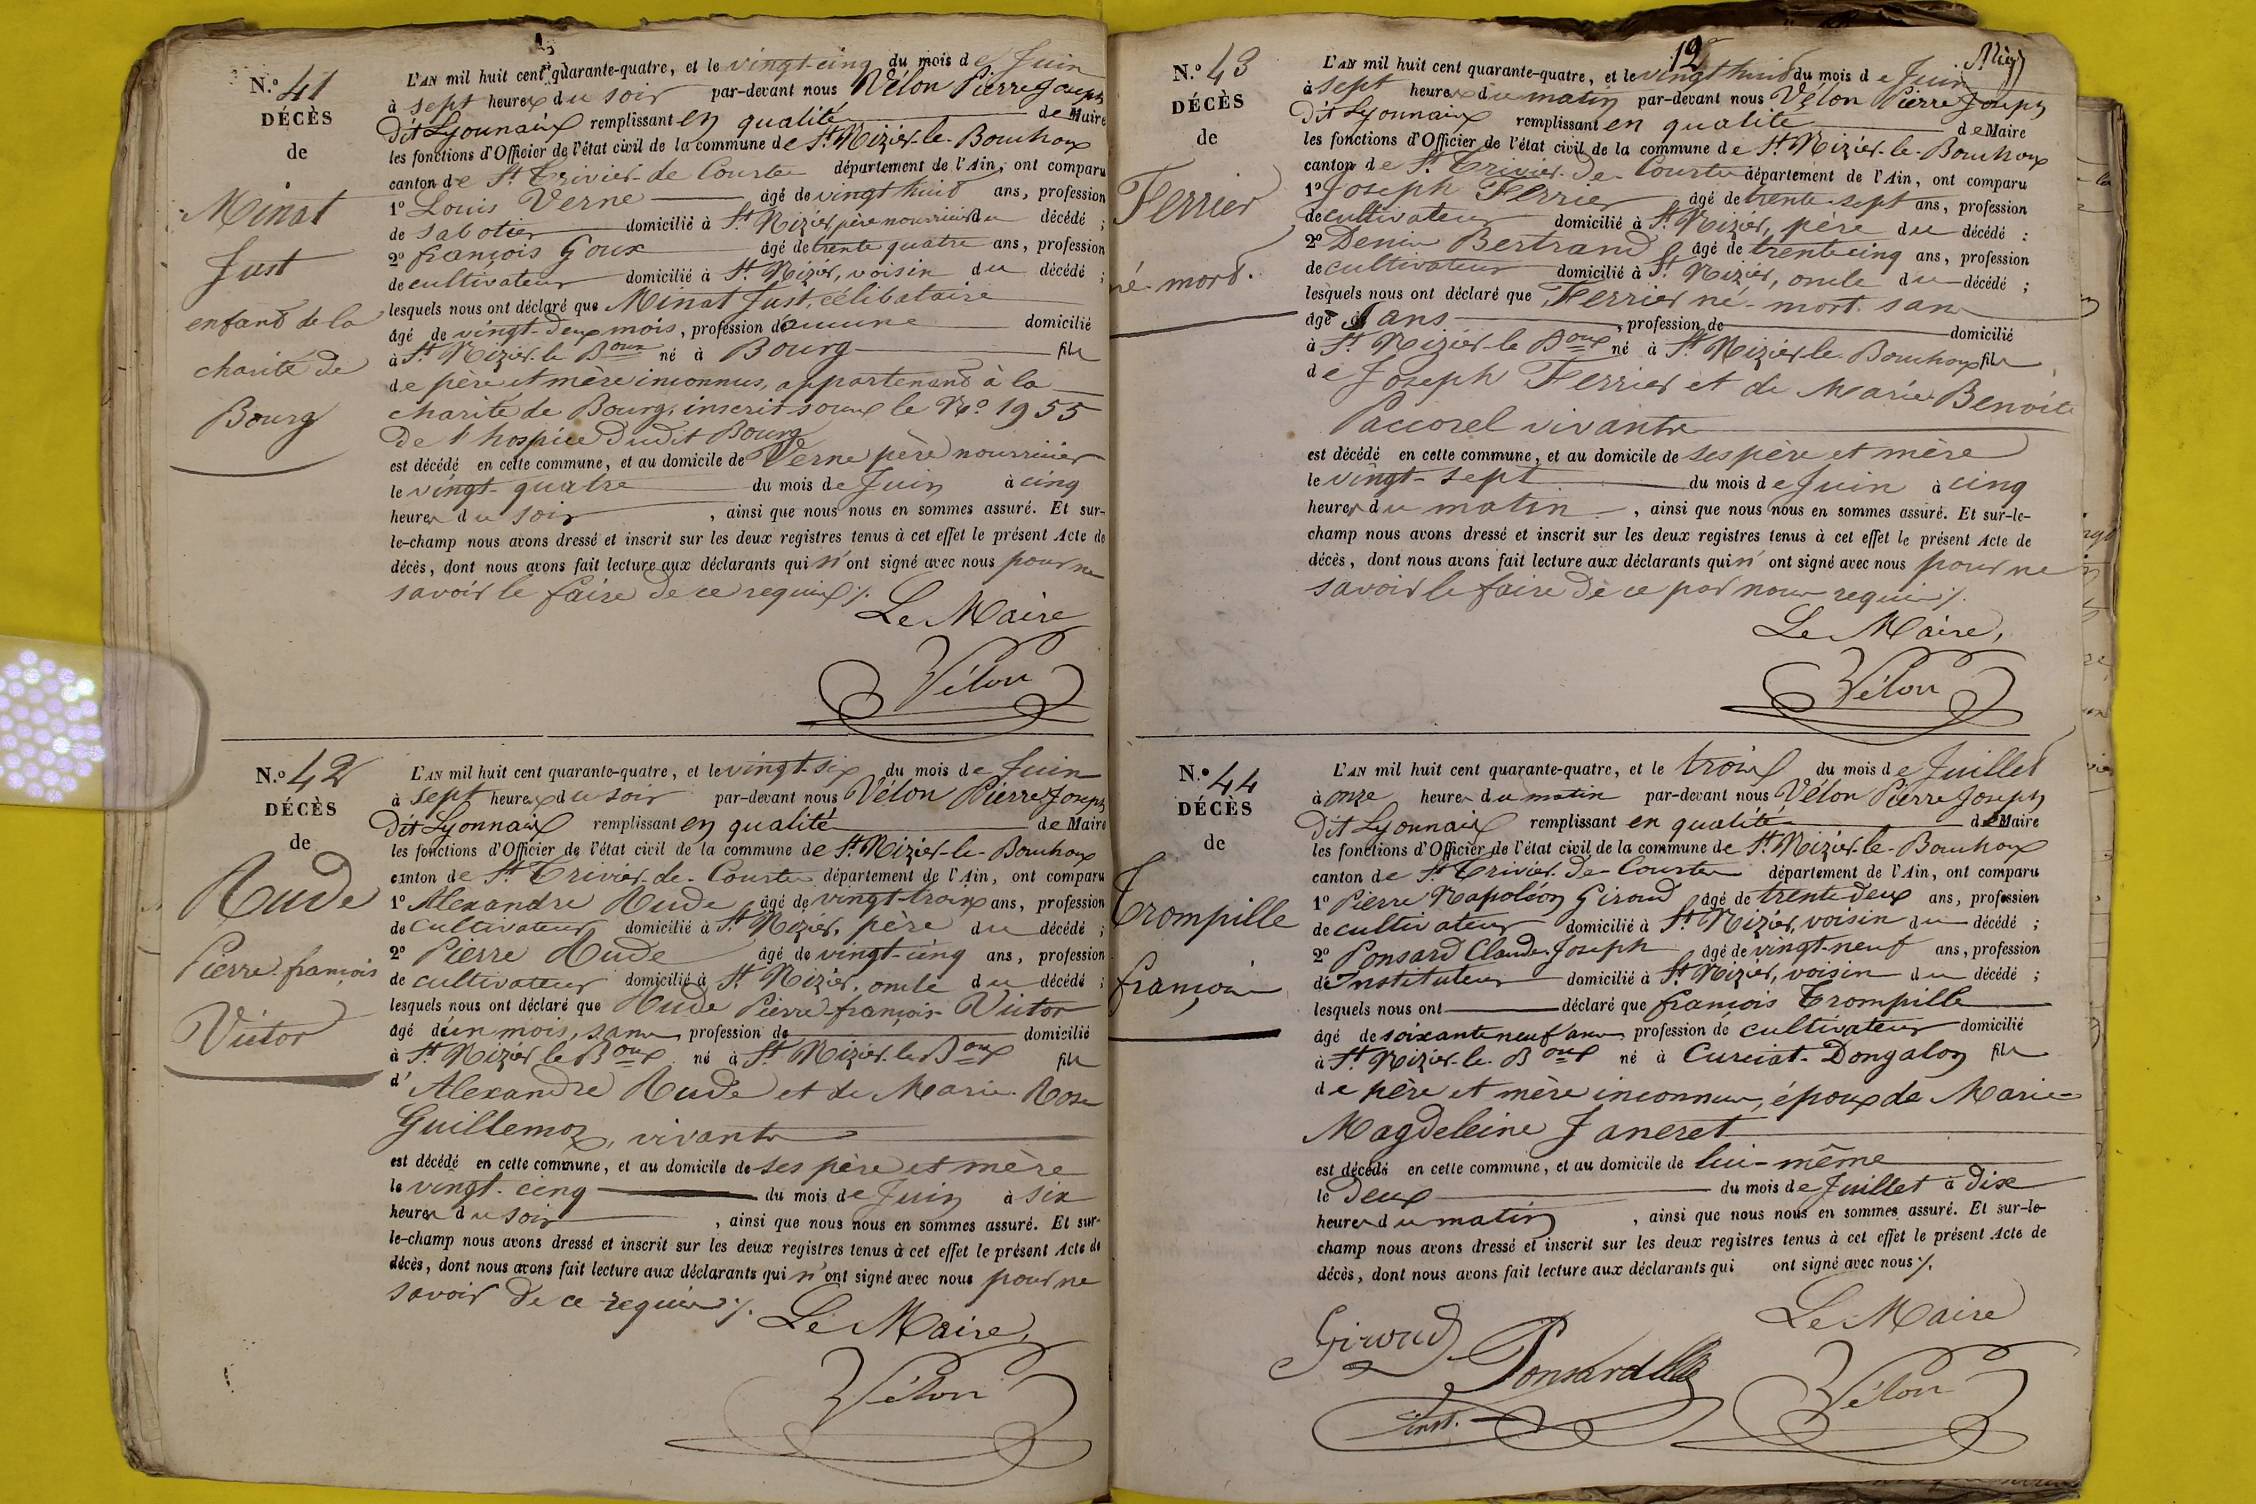 N.o 41
DÉCÈS
de
Minat
Just
enfant de la
charité de
Bourg
L'AN mil huit cent quarante-quatre, et le vingt-cinq du mois de Juin
à sept heures du soir par-devant nous Vélon Pierre Joseph
dit Lyonnais remplissant en qualité de Maire
les fonctions d'Officier de l'état civil de la commune de St Nizier-le-Bouchoux
canton de St Trivier-de-Courtes département de l'Ain, ont comparu
1o Louis Verne âgé de vingt huit ans, profession
de sabotier domicilié à St Nizier, père nourricier du décédé ;
2o françois Goux âgé de trente quatre ans, profession
de cultivateur domicilié à St Nizier, voisin du décédé ;
lesquels nous ont déclaré que Minat Just, célibataire
âgé de vingt-deux mois, profession d'aucune domicilié
à St Nizier-le Boux né à Bourg fils
de père et mère inconnus, appartenant à la
charité de Bourg, inscrit sous le No 1955
de l'hospice dudit Bourg
est décédé en cette commune, et au domicile de Verne père nourricier
le vingt-quatre du mois de Juin à cinq
heures du soir, ainsi que nous nous en sommes assuré. Et sur-
le-champ nous avons dressé et inscrit sur les deux registres tenus à cet effet le présent Acte de
décès, dont nous avons fait lecture aux déclarants qui n'ont signé avec nous pour ne
savoir le faire de ce requis ⁒.
Le Maire
Vélon
N.o 42
DÉCÈS
de
Rude
Pierre-françois
Victor
L'AN mil huit cent quarante-quatre, et le vingt-six du mois de Juin
à sept heures du soir par-devant nous Vélon Pierre Joseph
dit Lyonnais remplissant en qualité de Maire
les fonctions d'Officier de l'état civil de la commune de St Nizier-le-Bouchoux
canton de St Trivier-de-Courtes département de l'Ain, ont comparu
1o Alexandre Rude âgé de vingt-trois ans, profession
de cultivateur domicilié à St Nizier, père du décédé ;
2o Pierre Rude âgé de vingt-cinq ans, profession
de cultivateur domicilié à St Nizier, oncle du décédé ;
lesquels nous ont déclaré que Rude Pierre-françois Victor
âgé d'un mois, sans profession de domicilié
à St Nizier le Boux né à St Nizier-le Boux fils
d'Alexandre Rude et de Marie-Rose
Guillemoz, vivants
est décédé en cette commune, et au domicile de ses père et mère
le vingt-cinq du mois de Juin à six
heures du soir, ainsi que nous nous en sommes assuré. Et sur-
le-champ nous avons dressé et inscrit sur les deux registres tenus à cet effet le présent Acte de
décès, dont nous avons fait lecture aux déclarants qui n'ont signé avec nous pour ne
savoir de ce requis ⁒.
Le Maire,
Vélon
12
N.o 43
DÉCÈS
de
Ferrier
né-mort.
L'AN mil huit cent quarante-quatre, et le vingt huit du mois de Juin
à sept heures du matin par-devant nous Vélon Pierre Joseph
dit Lyonnais remplissant en qualité de Maire
les fonctions d'Officier de l'état civil de la commune de St Nizier-le-Bouchoux
canton de St Trivier-de-Courtes département de l'Ain, ont comparu
1o Joseph Ferrier âgé de trente-sept ans, profession
de cultivateur domicilié à St Nizier, père du décédé :
2o Denis Bertrand âgé de trente cinq ans, profession
de cultivateur domicilié à St Nizier, oncle du décédé ;
lesquels nous ont déclaré que Ferrier né-mort sans
âgé de ans, profession de domicilié
à St Nizier-le Boux né à St Nizier-le-Bouchoux fils
de Joseph Ferrier et de Marie Benoite
Paccorel vivants
est décédé en cette commune, et au domicile de ses père et mère
le vingt-sept du mois de Juin à cinq
heures du matin, ainsi que nous nous en sommes assuré. Et sur-le-
champ nous avons dressé et inscrit sur les deux registres tenus à cet effet le présent Acte de
décès, dont nous avons fait lecture aux déclarants qui n'ont signé avec nous pour ne
savoir le faire de ce par nous requis ⁒.
Le Maire,
Vélon
N.o 44
DÉCÈS
de
Trompille
françois
L'AN mil huit cent quarante-quatre, et le trois du mois de Juillet
à onze heures du matin par-devant nous Vélon Pierre Joseph
dit Lyonnais remplissant en qualité de Maire
les fonctions d'Officier de l'état civil de la commune de St Nizier-le-Bouchoux
canton de St Trivier-de-Courtes département de l'Ain, ont comparu
1o Pierre Napoléon Giroud âgé de trente-deux ans, profession
de cultivateur domicilié à St Nizier, voisin du décédé ;
2o Ponsard Claude-Joseph âgé de vingt-neuf ans, profession
de Instituteur domicilié à St Nizier, voisin du décédé ;
lesquels nous ont déclaré que françois Trompille
âgé de soixante neuf ans profession de cultivateur domicilié
à St Nizier-le-Boux né à Curciat-Dongalon fils
de père et mère inconnus, époux de Marie-
Magdeleine Janeret
est décédé en cette commune, et au domicile de lui-même
le deux du mois de Juillet à dix
heures du matin, ainsi que nous nous en sommes assuré. Et sur-le-
champ nous avons dressé et inscrit sur les deux registres tenus à cet effet le présent Acte de
décès, dont nous avons fait lecture aux déclarants qui ont signé avec nous ⁒.
Le Maire
Giroud
Ponsard
Inst.
Vélon